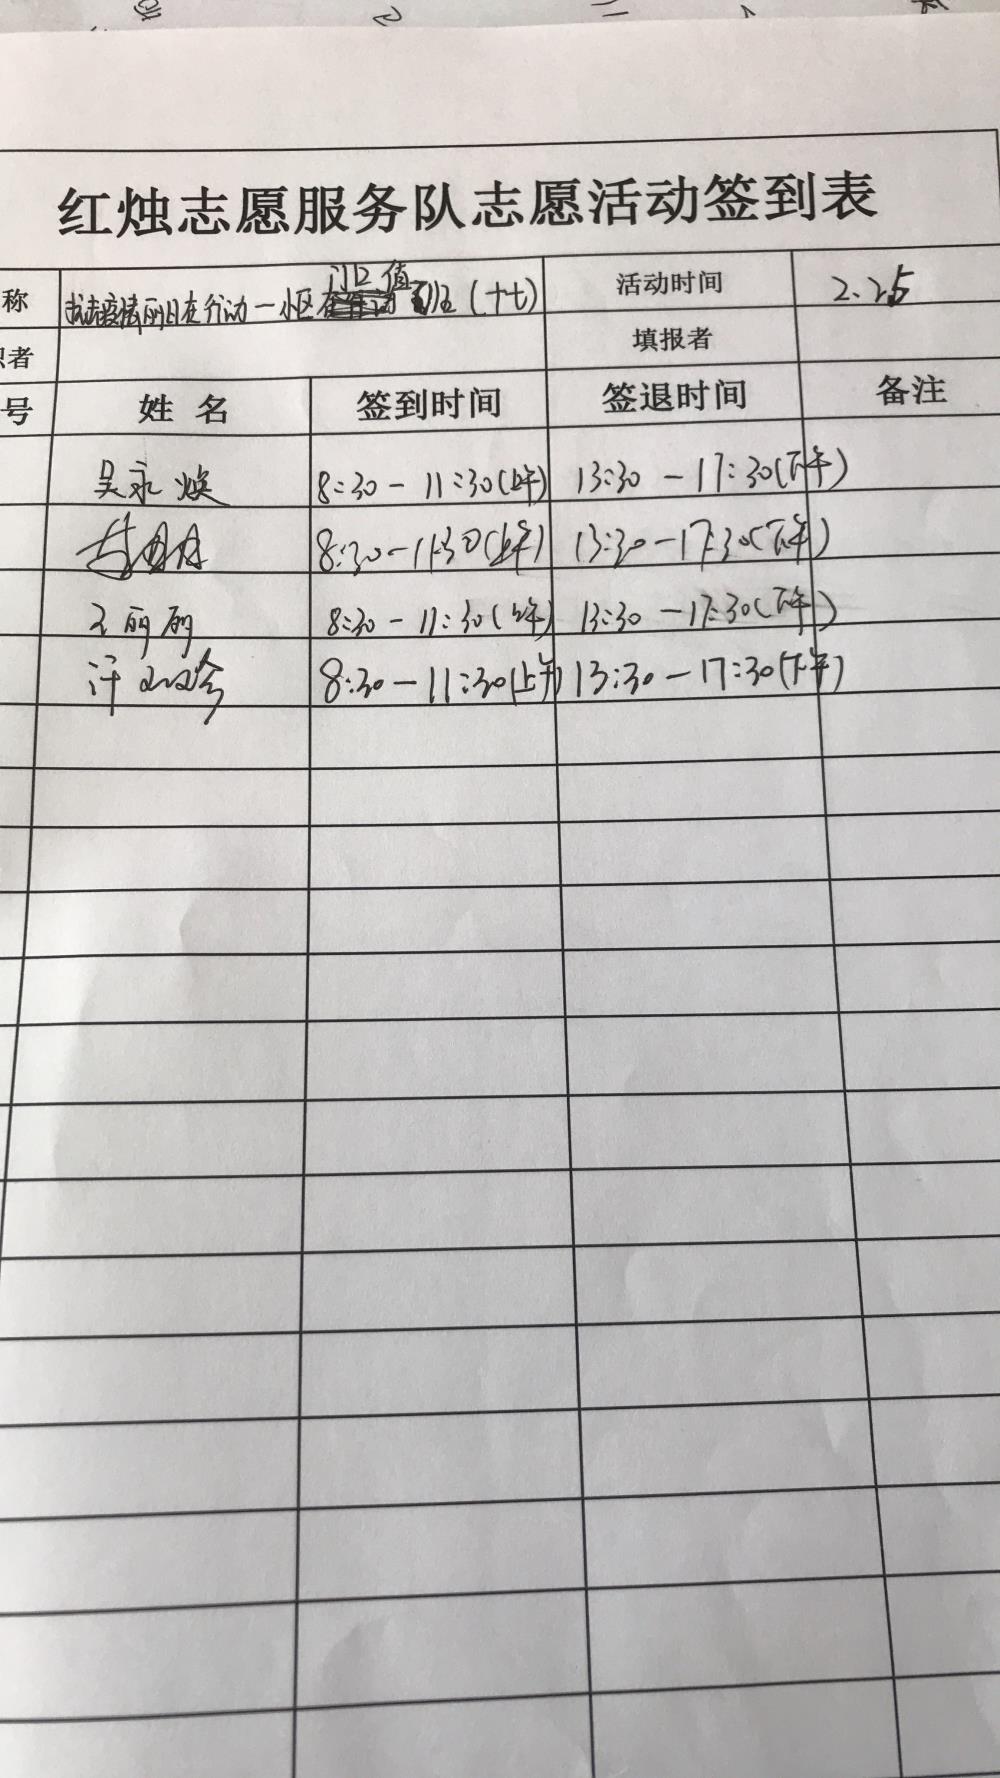 红烛志愿服务队志愿活动签到表
称 抗击疫情丽日在行动一小区门口值班（十七） 活动时间 2.25
织者 填报者
号 姓名 签到时间 签退时间 备注
吴永焕 8:30-11:30(上午) 13:30-17:30(下午)
8:30-11:30(上午) 13:30-17:30(下午)
王丽丽 8:30-11:30(上午) 13:30-17:30(下午)
汗 8:30-11:30(上午) 13:30-17:30(下午)